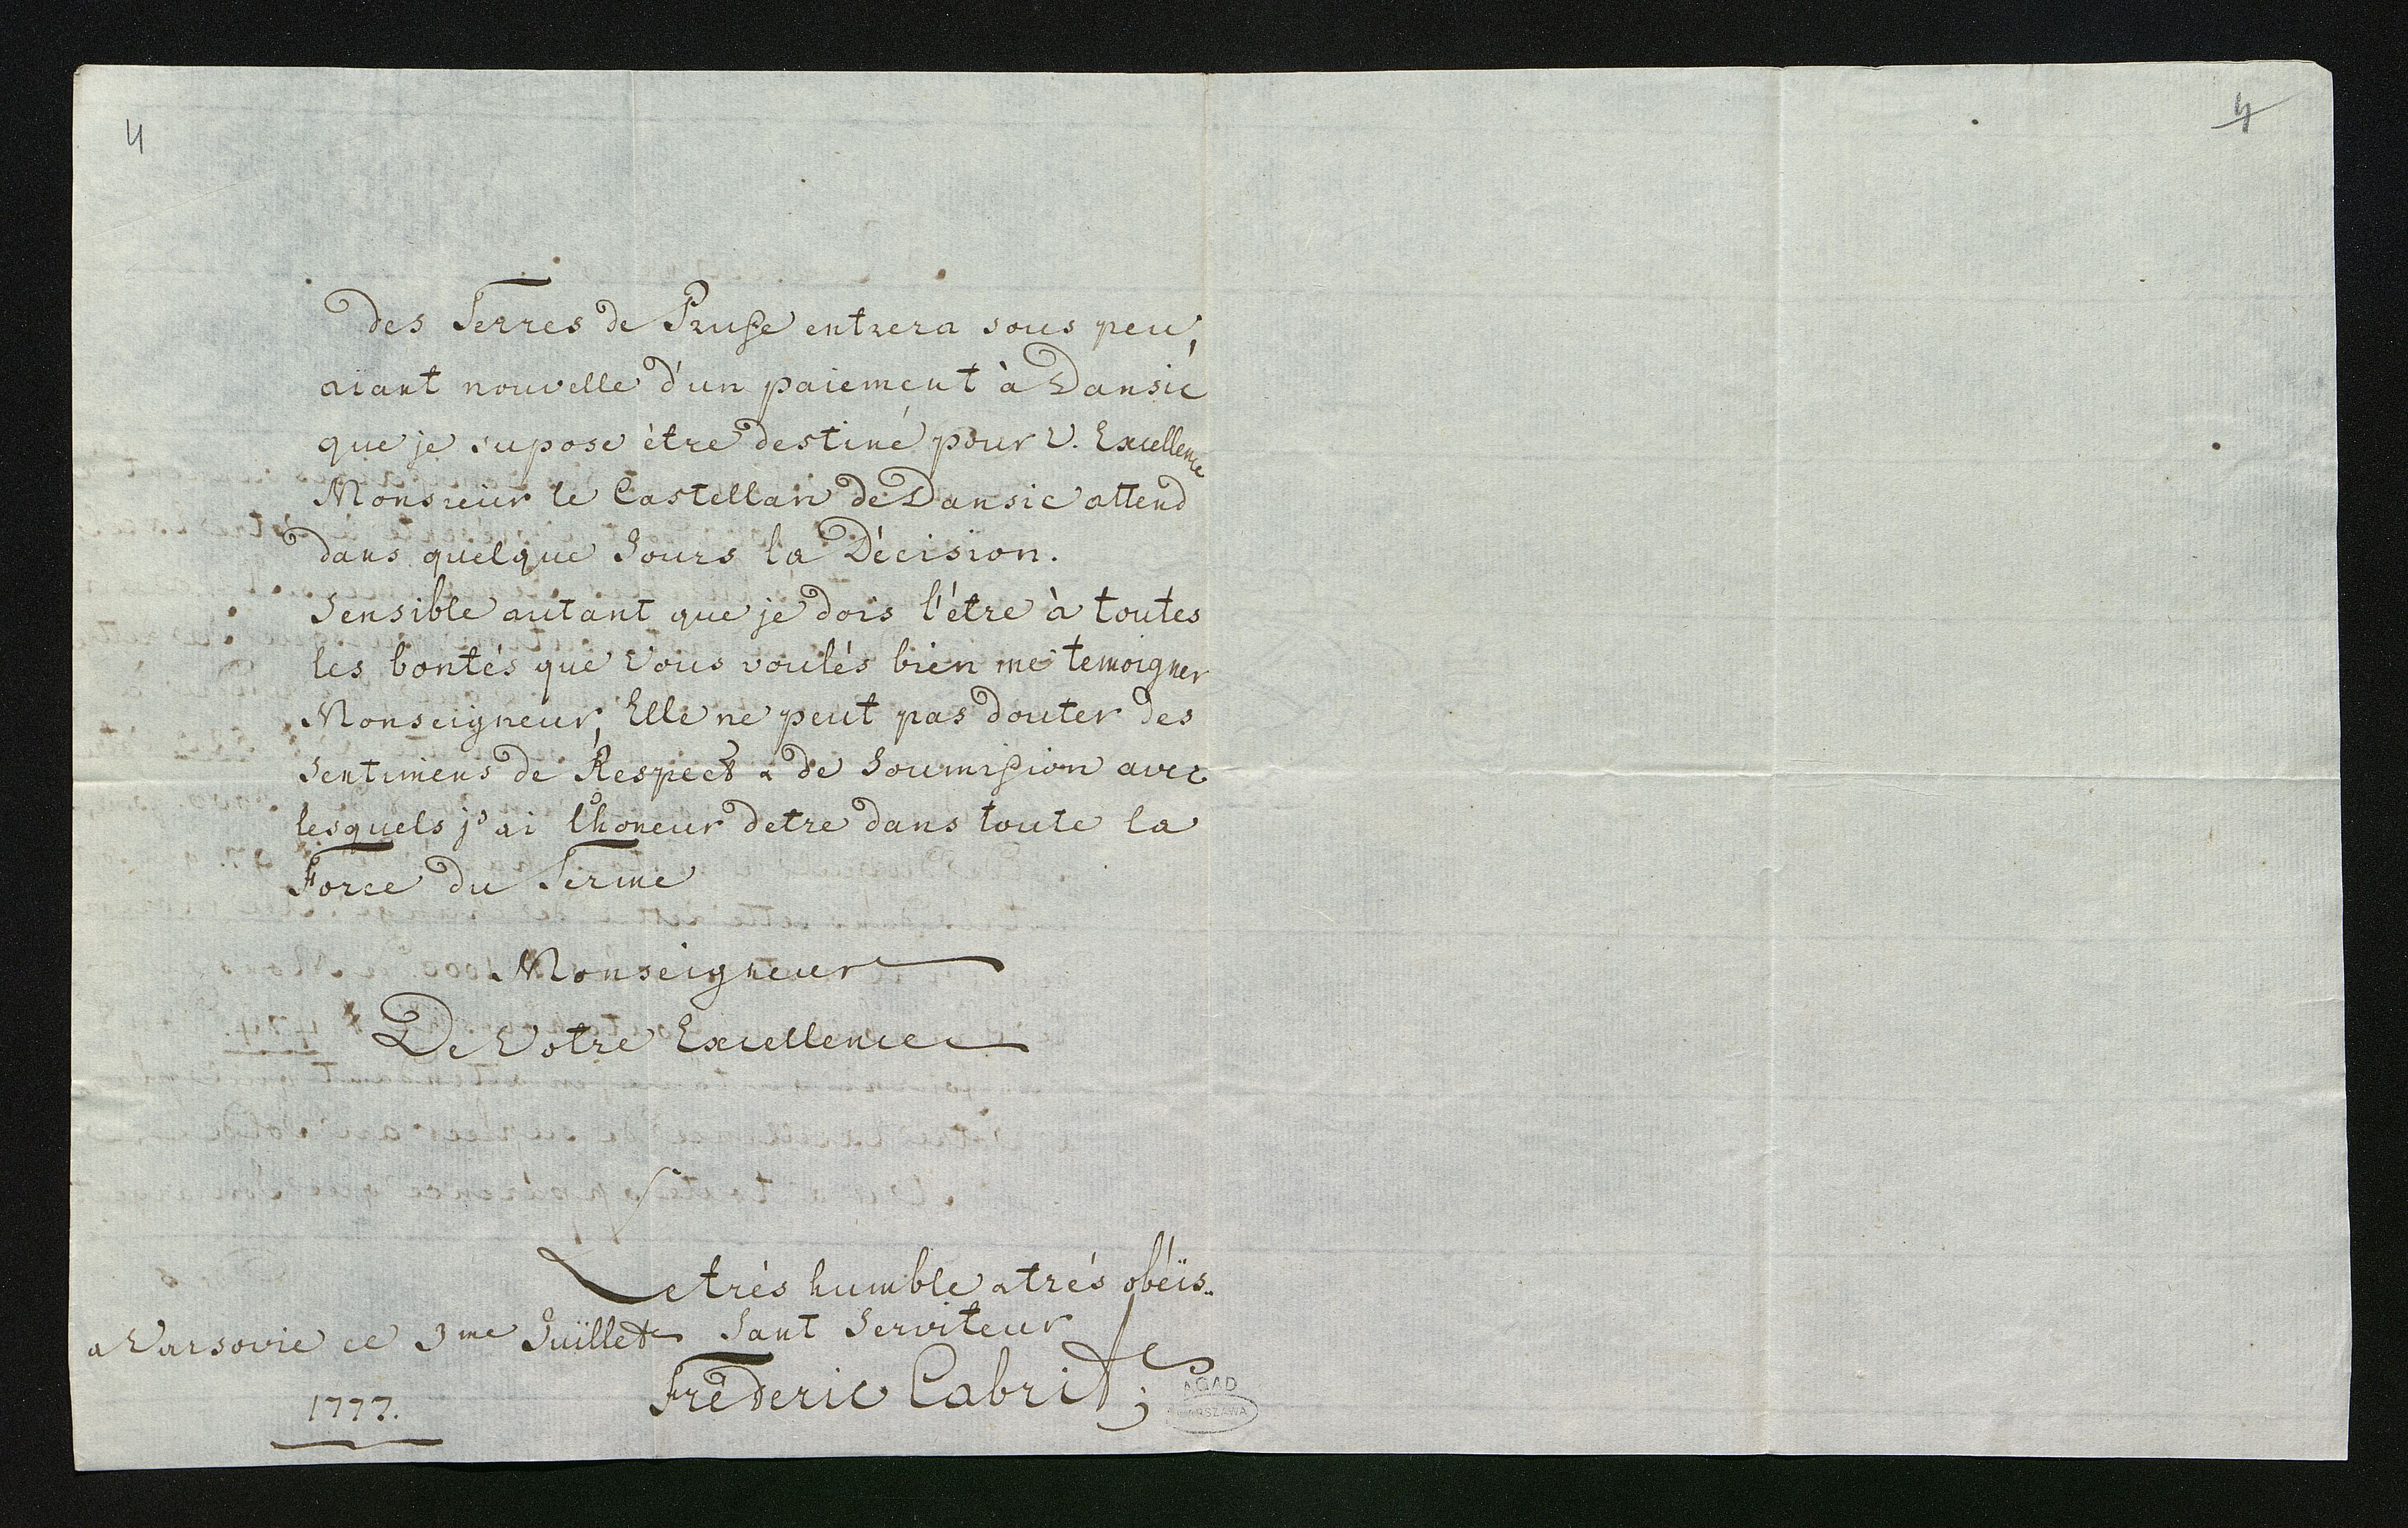 4
4
des Terres de Prusse entrera sous peu,
aiant nouvelle d'un paiement à Dansic
que je supose ètre destiné pour V. Excellence
Monsieur le Castellan de Dansic attend
dans quelque Jours la Décision.
Sensible autant que je dois l'étre à toutes
les bontés que Vous voulés bien me temoigner
Monseigneur, Elle ne peut pas douter des
Sentimens de Respect & de Soumission avec
lesquels j'ai l'honeur detre dans toute la
Force du Terme
Monseigneur
De Votre Excellence
Le trés humble & trés obéïs..
a Varsovie ce 3me Juïllet Sant Serviteur
Fréderic Cabrit;
1777.
AGAD
WARSZAWA